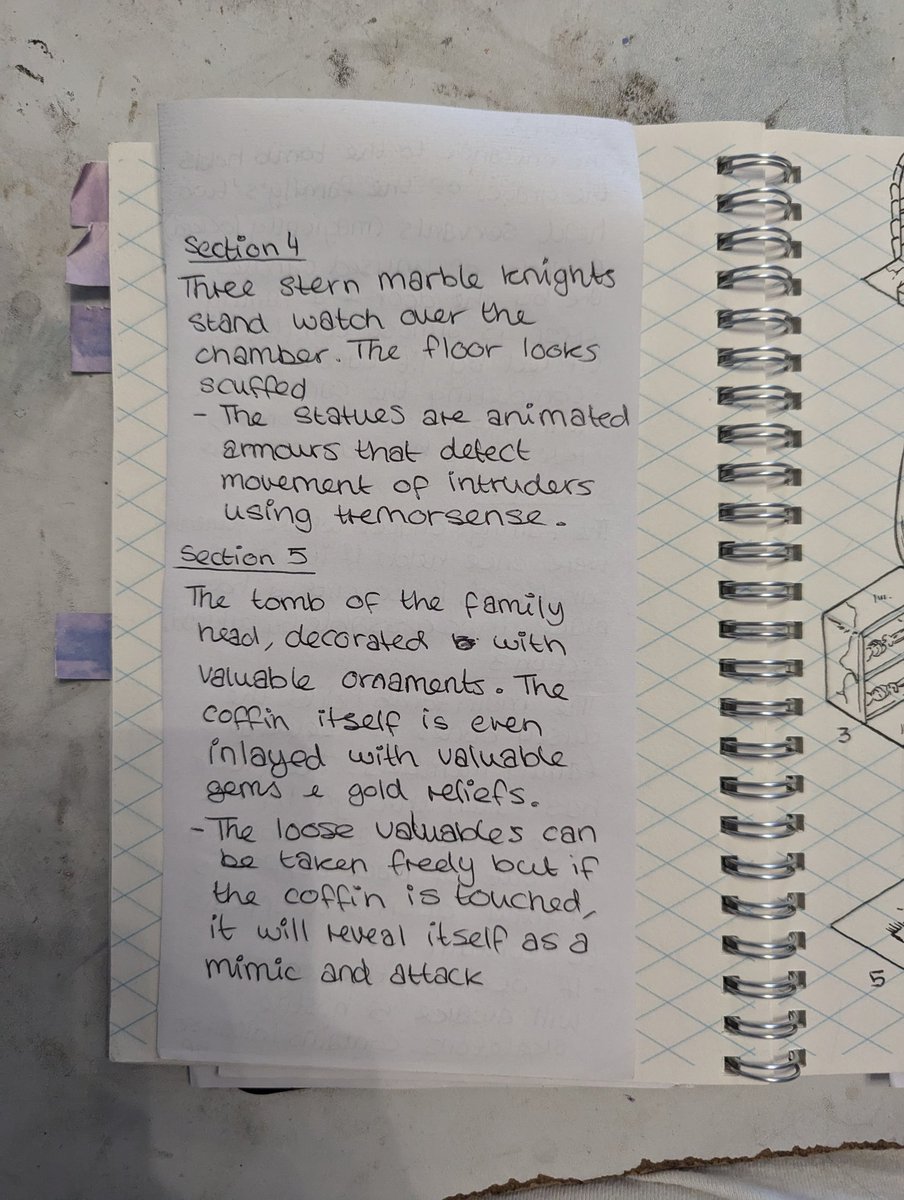 Section 4
Three stern marble knights
stand watch over the
chamber. The floor looks
scuffed
- The statues are animated
armours that detect
movement of intruders
using tremorsense.
Section 5
The tomb of the family
head, decorated with
valuable ornaments. The
coffin itself is even
inlayed with valuable
gems & gold reliefs.
- The loose valuables can
be taken freely but if
the coffin is touched,
it will reveal itself as a
mimic and attack
3
5